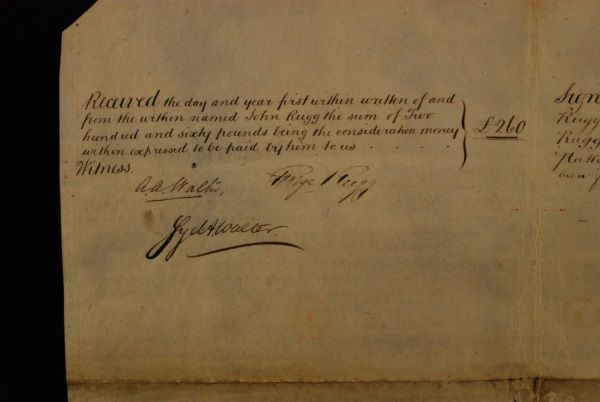 Received the day and year first within written of and
from the within named John Rugg the sum of Two
hundred and sixty pounds being the consideration money
within expressed to be paid by him to us
£260
Witness.
A. A. Walter,
George Rugg
Walter.
Sign
Rugg
Rugg